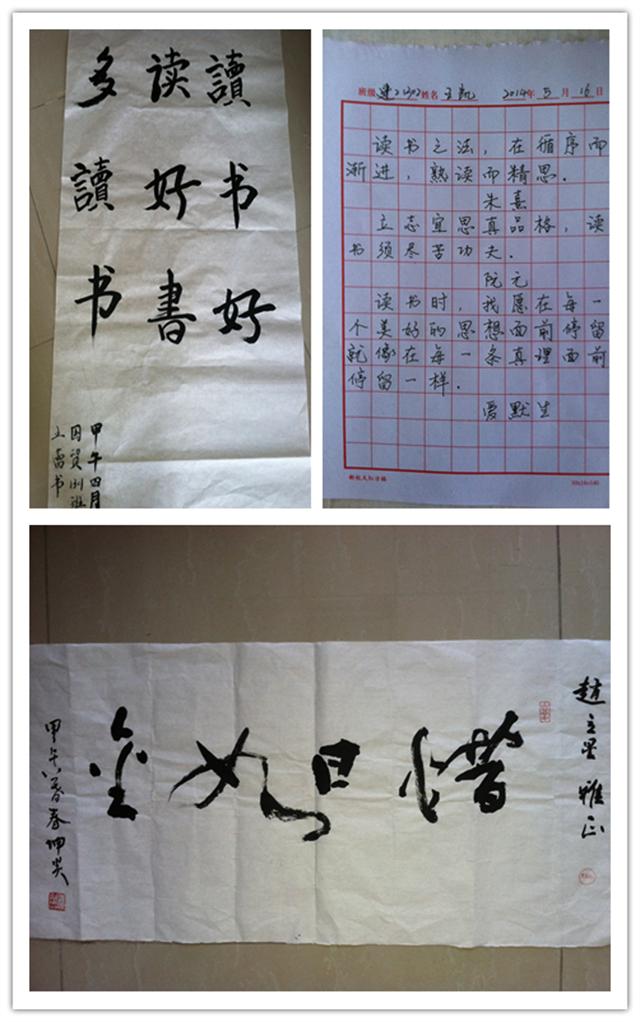 讀书好
读好書
多讀书
甲午四月
班级 姓名 王凯 2014年 5月 16日
读书之法，在循序而
渐进，熟读而精思.
朱熹
立志宜思真品格，读
书须尽苦功夫.
阮元
读书时，我愿在每一
个美好的思想面前停留
就像在每一条真理面前
停留一样.
爱默生
赵立星雅正
惜时如金
甲午暮春坤